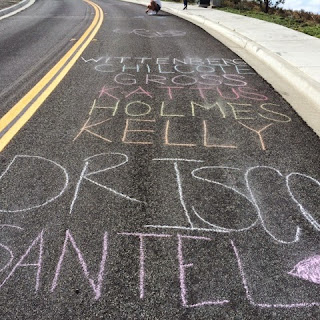 WITTENBERG
CHILCOTE
GROSS
KATTUS
HOLMES
KELLY
DRISCO
SANTEL